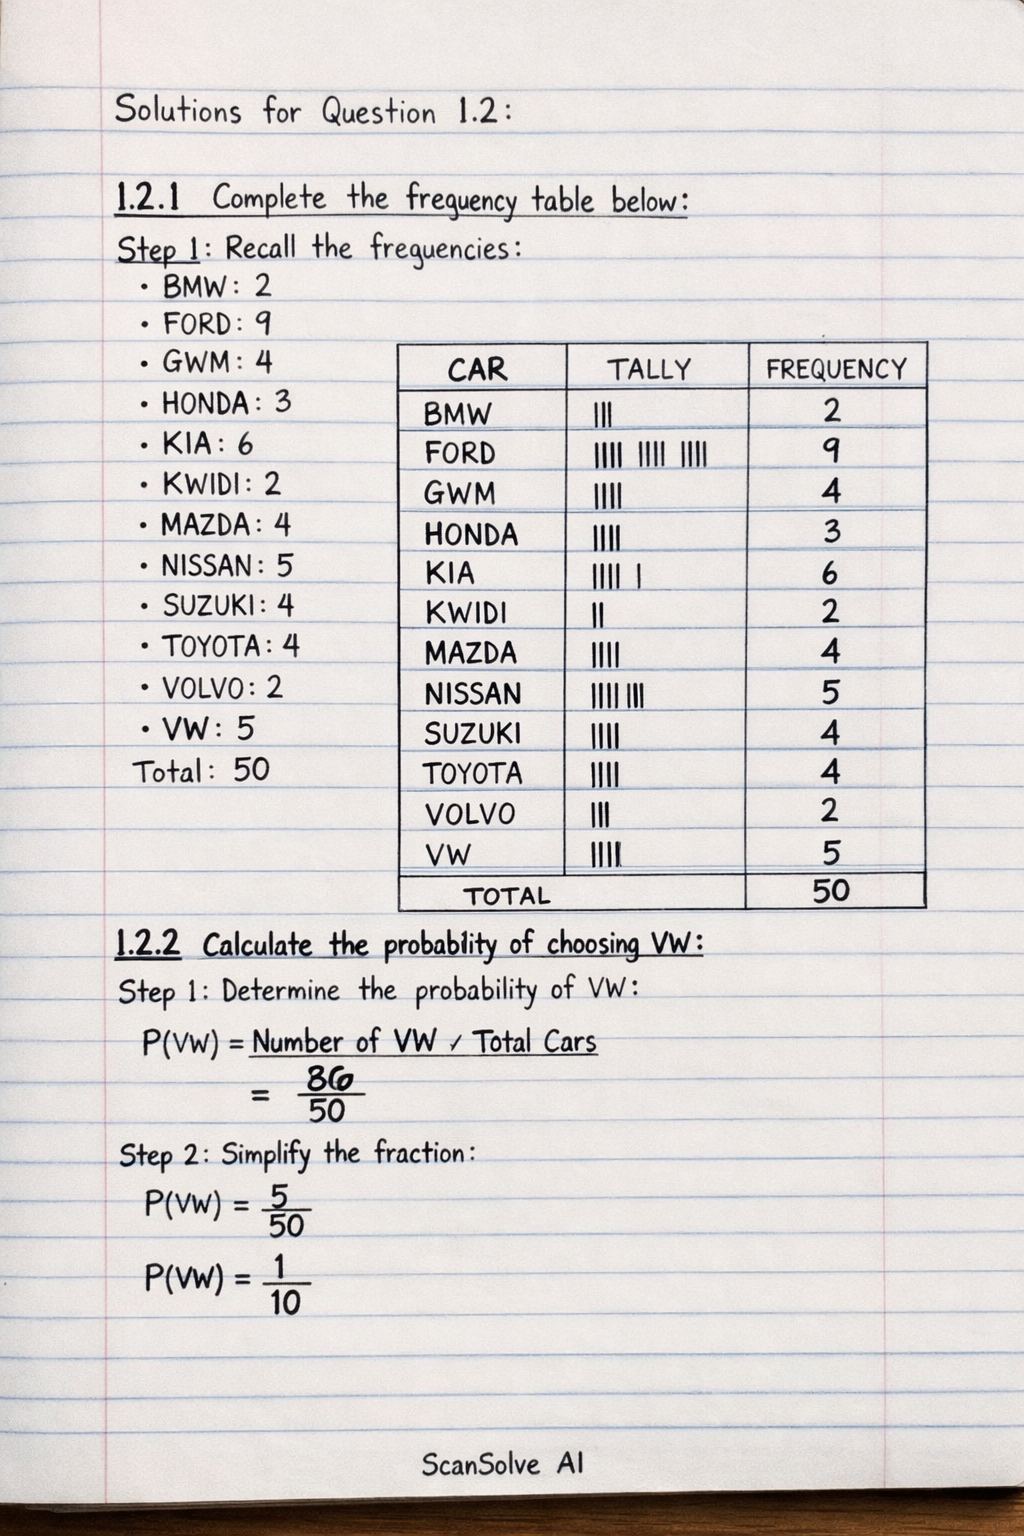 Solutions for Question 1.2:
1.2.1 Complete the frequency table below:
Step 1: Recall the frequencies:
• BMW: 2
• FORD: 9
• GWM: 4
• HONDA: 3
• KIA: 6
• KWIDI: 2
• MAZDA: 4
• NISSAN: 5
• SUZUKI: 4
• TOYOTA: 4
• VOLVO: 2
• VW: 5
Total: 50
CAR TALLY FREQUENCY
BMW ||| 2
FORD |||| |||| |||| 9
GWM |||| 4
HONDA |||| 3
KIA |||| | 6
KWIDI || 2
MAZDA |||| 4
NISSAN |||| ||| 5
SUZUKI |||| 4
TOYOTA |||| 4
VOLVO ||| 2
VW |||| 5
TOTAL 50
1.2.2 Calculate the probablity of choosing VW:
Step 1: Determine the probability of VW:
P(VW) = Number of VW / Total Cars
=
50
Step 2: Simplify the fraction:
P(VW) = 5
50
P(VW) = 1
10
ScanSolve AI